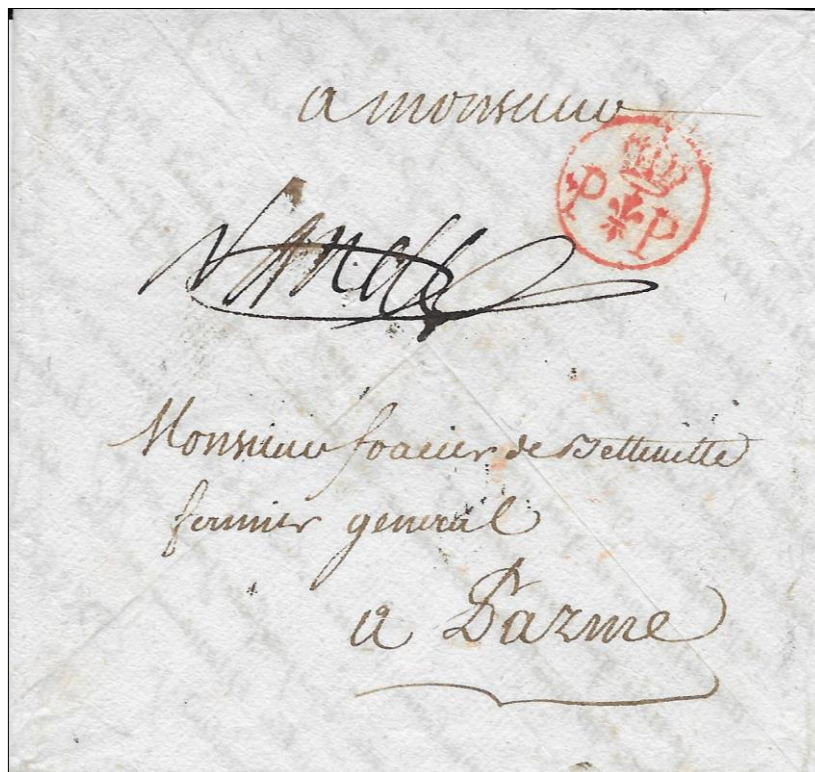 a monsieur
P P
Monsieur foacier de
fermier general
a Parme